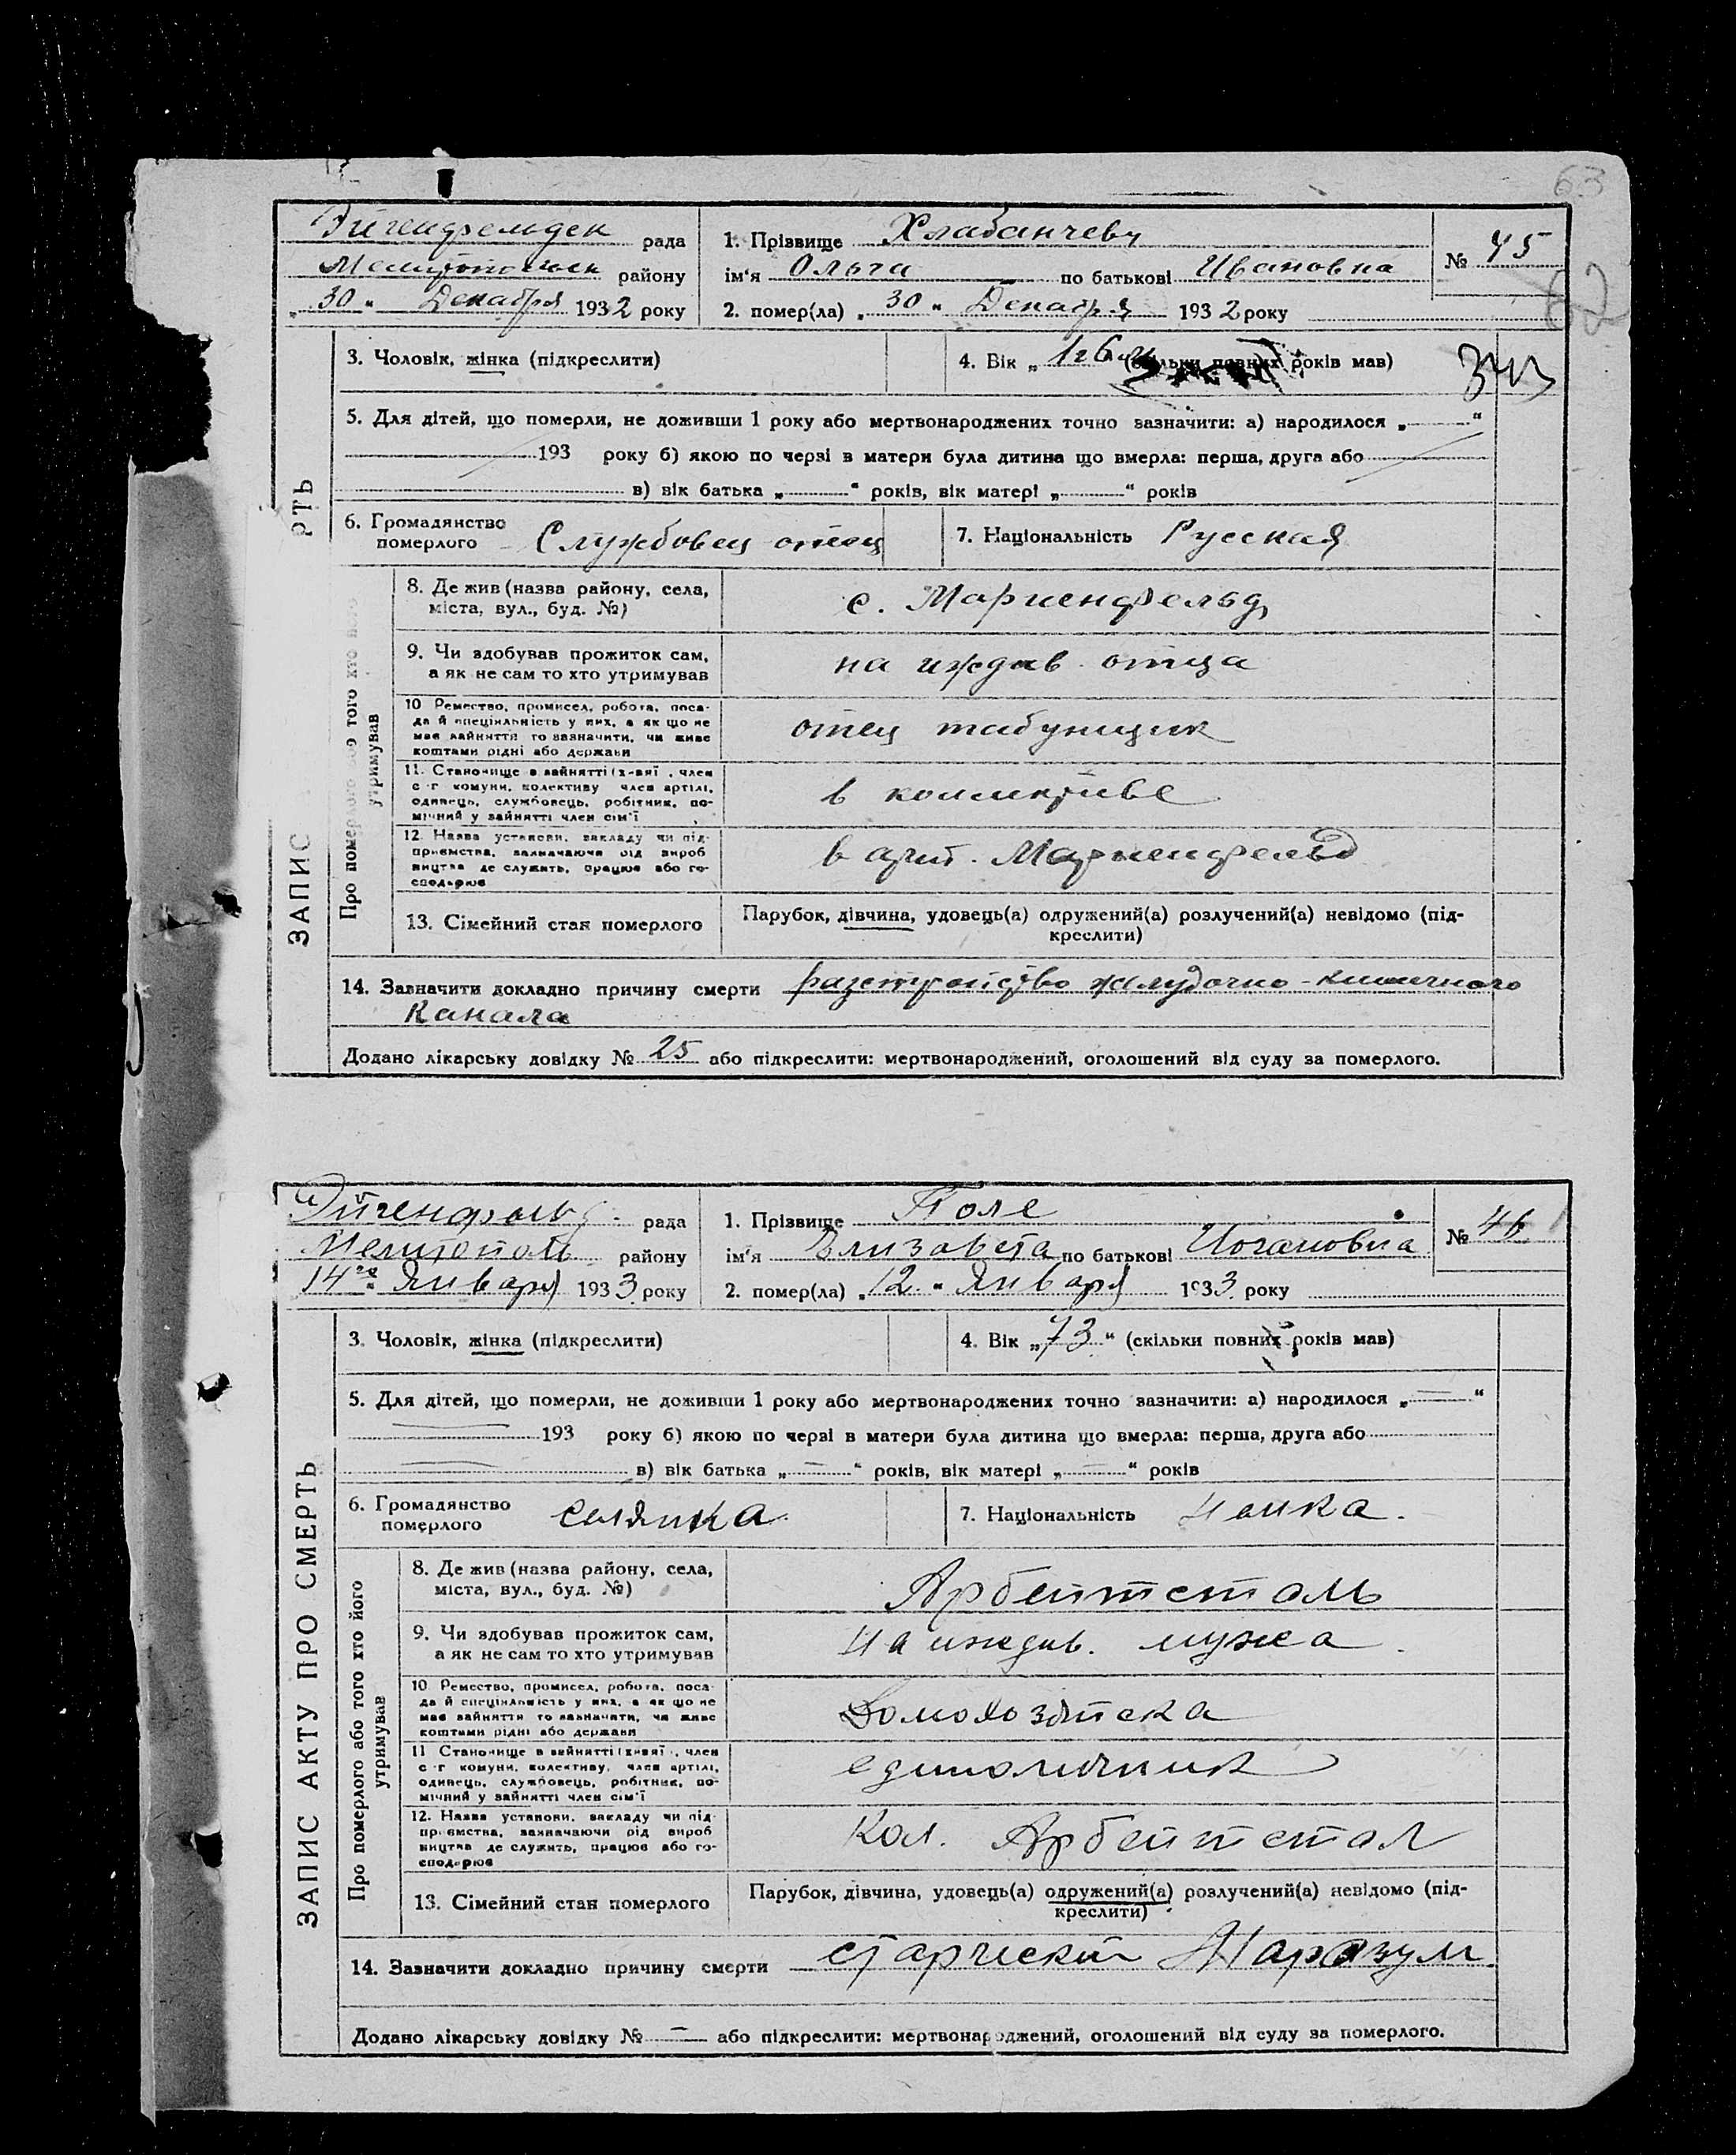 63
Эйгенфельдск рада
Мелитопольск району
„30“ Декабря 1932 року
1. Прізвище
ім'я Ольга по батькові Ивановна
2. помер(ла) „30“ Декабря 1932 року
№ 45
3. Чоловік, жінка (підкреслити)
4. Вік „ (скільки повних років мав)
343
5. Для дітей, що померли, не доживши 1 року або мертвонароджених точно зазначити: а) народилося „ “
193 року б) якою по черзі в матери була дитина що вмерла: перша, друга або
в) вік батька „ “ років, вік матері „ “ років
6. Громадянство
померлого Службовец отец
7. Національність Русская
РТЬ
ЗАПИС
утримував
8. Де жив (назва району, села,
міста, вул., буд. №)
с. Мариенфельд
9. Чи здобував прожиток сам,
а як не сам то хто утримував
на иждив. отца
10 Ремество, промисел, робота, поса-
да й спеціяльність у них, а як що не
має зайняття то зазначити, чи живе
коштами рідні або держави
отец табунщик
11. Становище в зайнятті (х-вяї, член
с-г комуни, колективу член артілі,
одинець, службовець, робітник, по-
мічний у зайнятті член сім'ї
в коллективе
12. Назва установи, закладу чи під-
приємства, зазначаючи від вироб
ництва де служить, працює або го-
сподарює
в арт. Мариенфельд
13. Сімейний стан померлого
Парубок, дівчина, удовець(а) одружений(а) розлучений(а) невідомо (під-
креслити)
14. Зазначити докладно причину смерти разстройство желудочно-кишечного
канала
Додано лікарську довідку № 25 або підкреслити: мертвонароджений, оголошений від суду за померлого.
Эйгенфельд. рада
Мелитополь району
14го Января 1933 року
1. Прізвище Поле
ім'я Елизавета по батькові Иогановна
2. помер(ла) „12“ Января 1933 року
№ 46
3. Чоловік, жінка (підкреслити)
4. Вік „73“ (скільки повних років мав)
5. Для дітей, що померли, не доживши 1 року або мертвонароджених точно зазначити: а) народилося „—“
193 року б) якою по черзі в матери була дитина що вмерла: перша, друга або
в) вік батька „—“ років, вік матері „—“ років
6. Громадянство
померлого селянка
7. Національність немка.
ЗАПИС АКТУ ПРО СМЕРТЬ
Про померлого або того хто його
утримував
8. Де жив (назва району, села,
міста, вул., буд. №)
Арбейтсталь
9. Чи здобував прожиток сам,
а як не сам то хто утримував
на иждив. мужа
10 Ремество, промисел, робота, поса-
да й спеціяльність у них, а як що не
має зайняття то зазначити, чи живе
коштами рідні або держави
Домохозяйска
11 Становище в зайнятті (х-вяї, член
с-г комуни, колективу, член артілі,
одинець, службовець, робітник, по-
мічний у зайнятті член сім'ї
единоличник
12. Назва установи, закладу чи під-
приємства, зазначаючи рід вироб
ництва де служить, працює або го-
сподарює
Кол. Арбейтстал
13. Сімейний стан померлого
Парубок, дівчина, удовець(а) одружений(а) розлучений(а) невідомо (під-
креслити)
14. Зазначити докладно причину смерти старческий Маразум
Додано лікарську довідку № — або підкреслити: мертвонароджений, оголошений від суду за померлого.